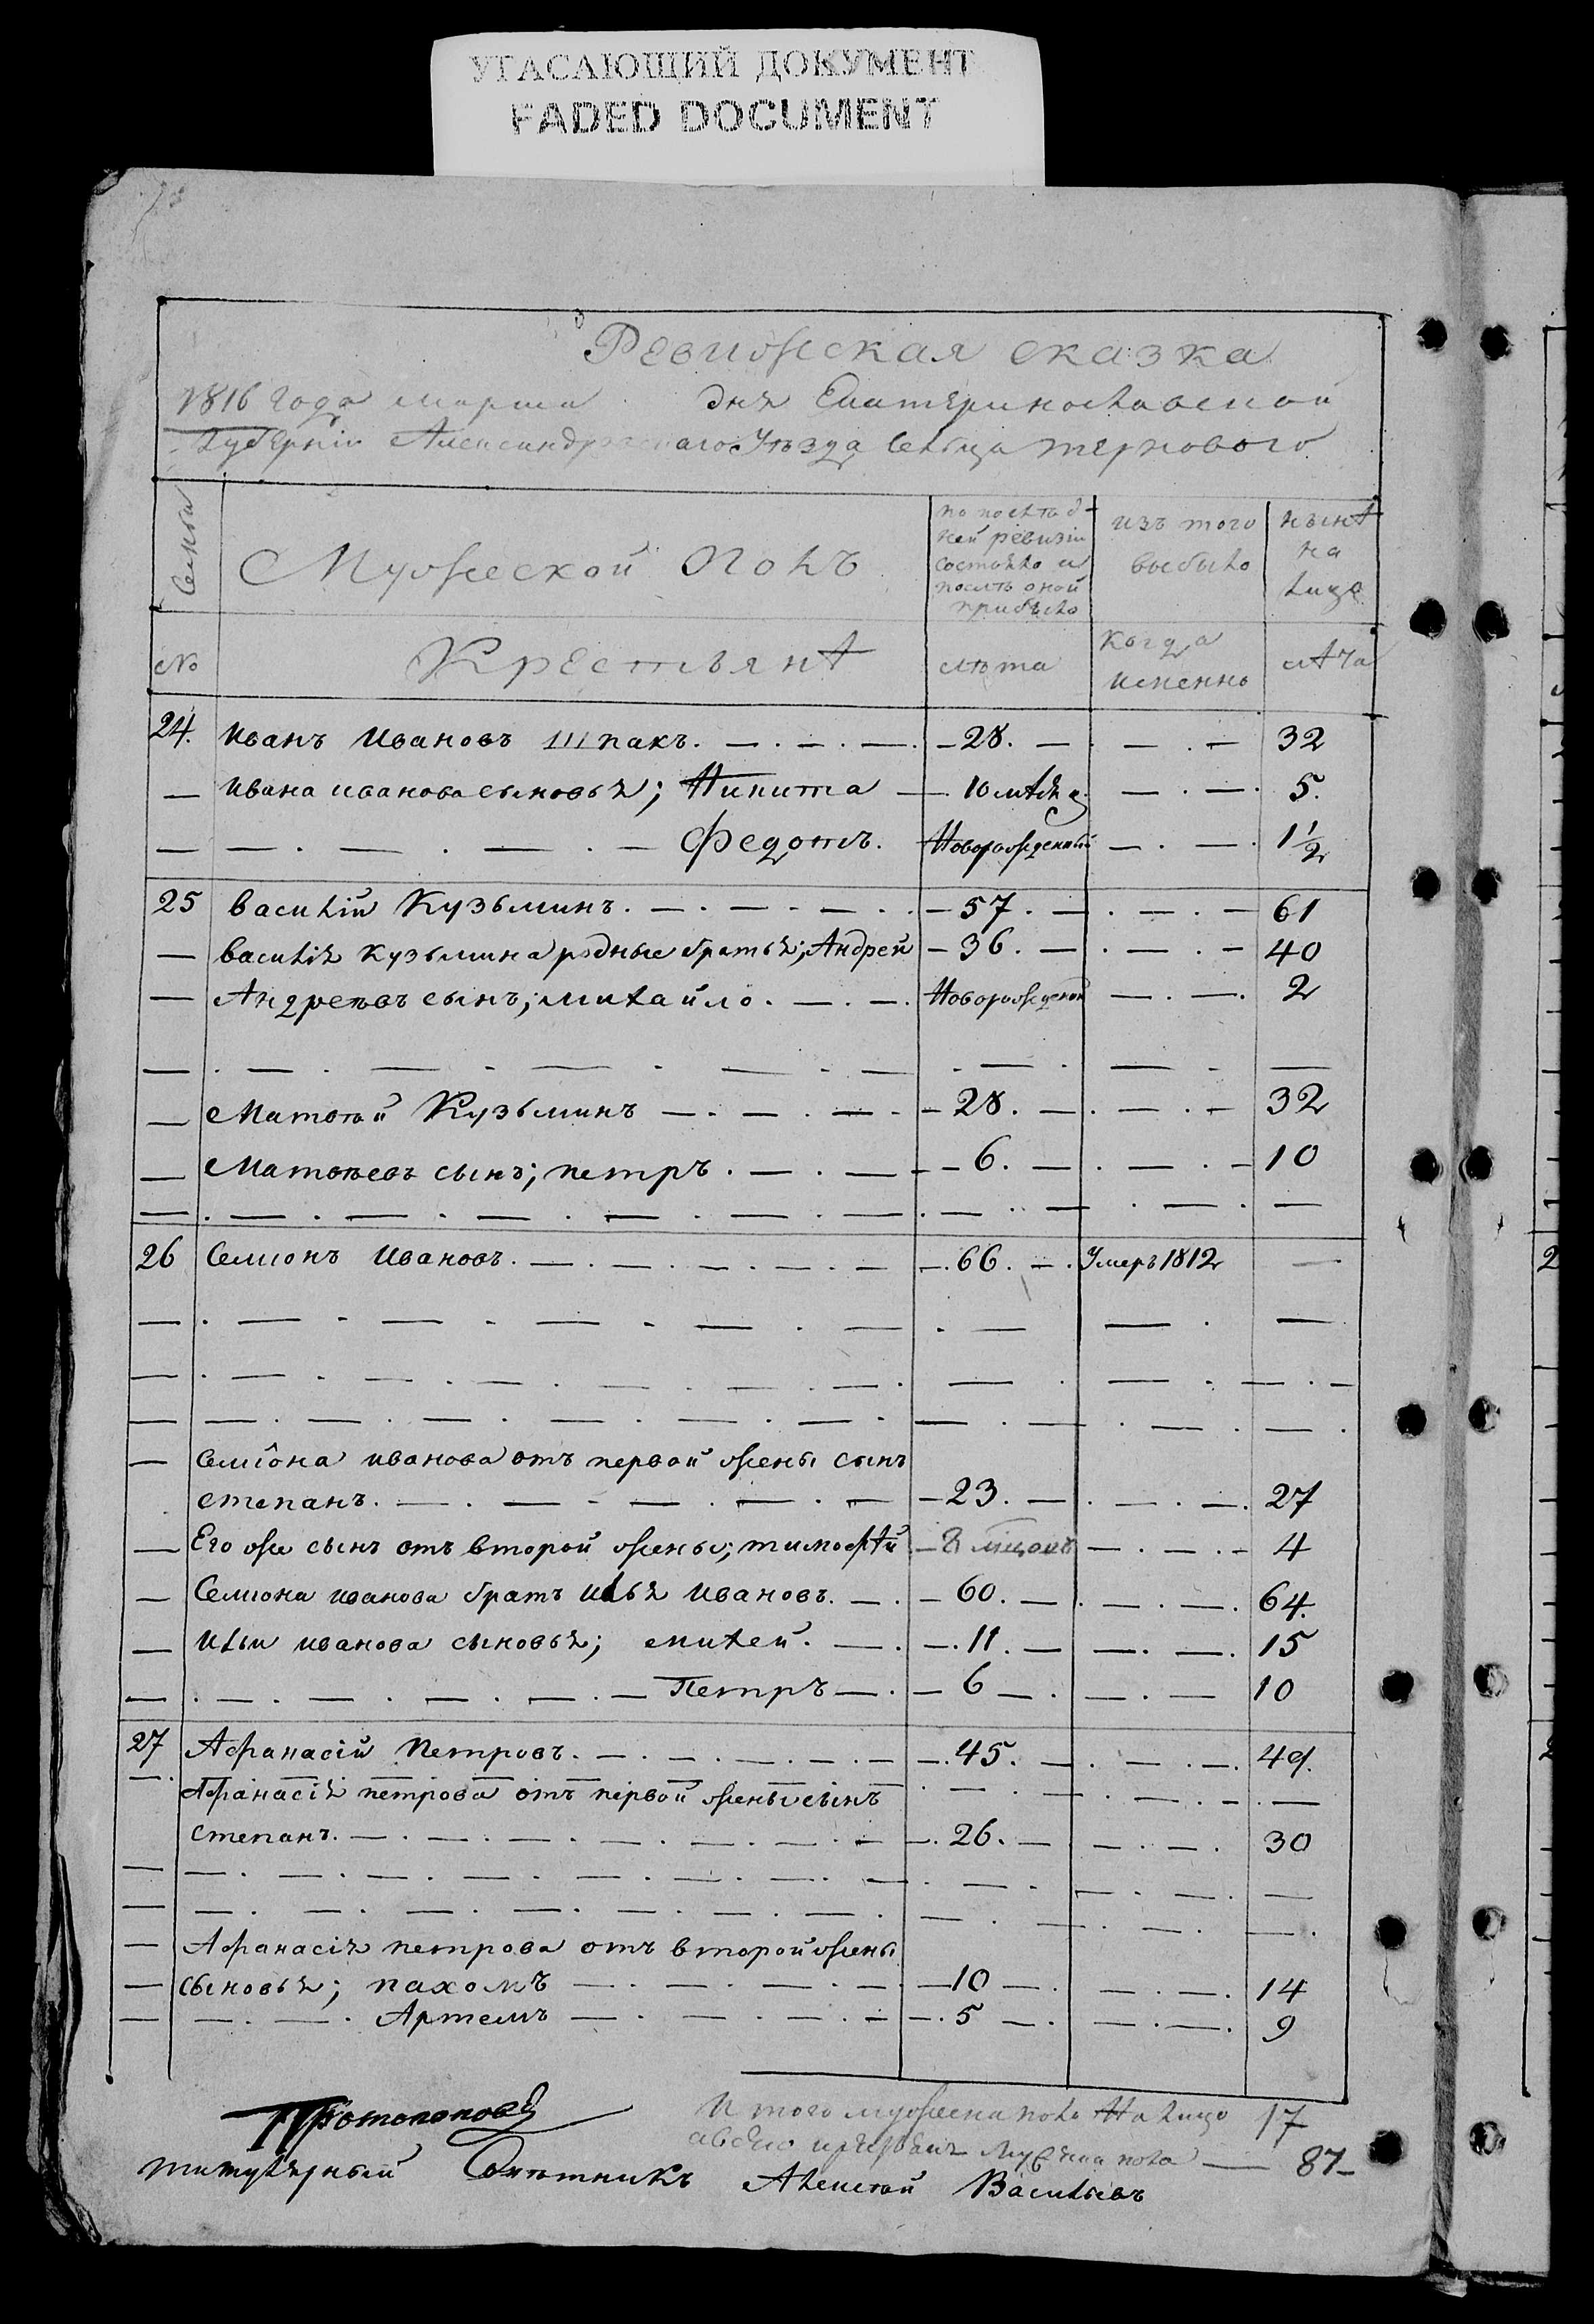 УГАСАЮЩИЙ ДОКУМЕНТ
FADED DOCUMENT
Ревижская сказка
1816 года марта дня Екатеринославской
Губернiи Александровскаго Уѣзда Сельца тернового
Семьи
Мужеской полъ
по послѣд-
ней ревизiи
состояло и
послѣ оной
прибыло
изъ того
выбыло
нынѣ
на
лицо
№
Крестьянѣ
лѣта
когда
именно
лѣта
24. Иванъ Ивановъ Шпакъ. 28. 32
Ивана иванова сыновья; Никита 10 мѣся. 5.
Федотъ. Новорожденный 1 1/2
25 василiй Кузьминъ. 57. 61
василiя кузьмина родные братья; Андрей 36. 40
Андреевъ сынъ; михайло. Новорожденой 2
Матвѣй Кузьминъ 28. 32
Матвѣевъ сынъ; петръ. 6. 10
26 Семионъ Ивановъ. 66. Умеръ 1812
Семиона иванова отъ первой жены сынъ
степанъ. 23. 27
Его же сынъ отъ второй жены; тимофѣй 8 4
Семиона иванова братъ илья Ивановъ. 60. 64.
ильи иванова сыновья; михей. 11. 15
Петръ 6 10
27 Афанасiй Петровъ. 45. 49.
Афанасiя петрова отъ первой жены сынъ
степанъ. 26. 30
Афанасiя петрова отъ второй жены
сыновья; пахомъ 10 14
Артемъ 5 9
Итого мужеска пола На лицо 17
мужеска пола 87
Протопоповъ
титулярный Совѣтникъ Алексѣй Васильевъ